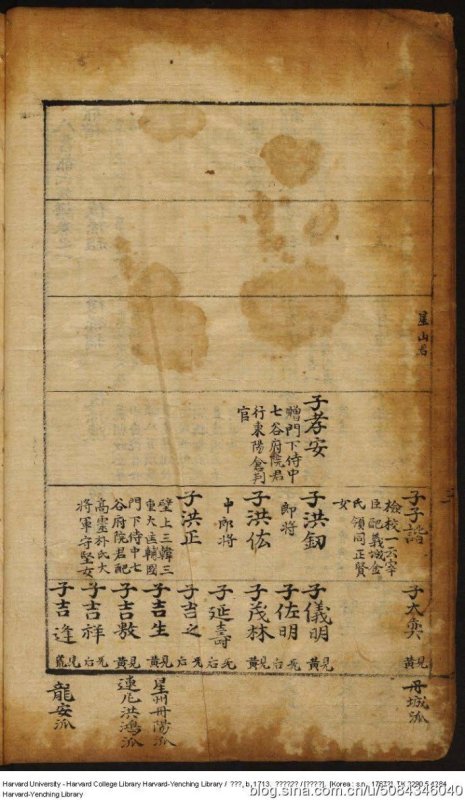 星山君
子孝安
贈門下侍中
七谷府院君
行東陽倉判
官
子子諧
檢校一六宰
臣配義城金
氏領同正賢
女
子洪釰
即将
子洪佐
中郎将
子洪正
壁上三韓三
重大匡輔國
門下侍中七
谷府院君配
高靈朴氏大
将軍守堅女
子太奐
見黄
子儀明
見黄
子佐明
見右
子茂林
見黄
子延壽
見右
子吉之
見右
子吉生
見黄
子吉敷
見黄
子吉祥
見右
子吉逢
見荒
丹城派
星州丹陽派
漣川洪鴻派
龍安派
Harvard University - Harvard College Library Harvard-Yenching Library / ???, b. 1713. ?????? / [????]. [Korea : s.n.,
Harvard-Yenching Library
blog.sina.com.cn/u/5084346040